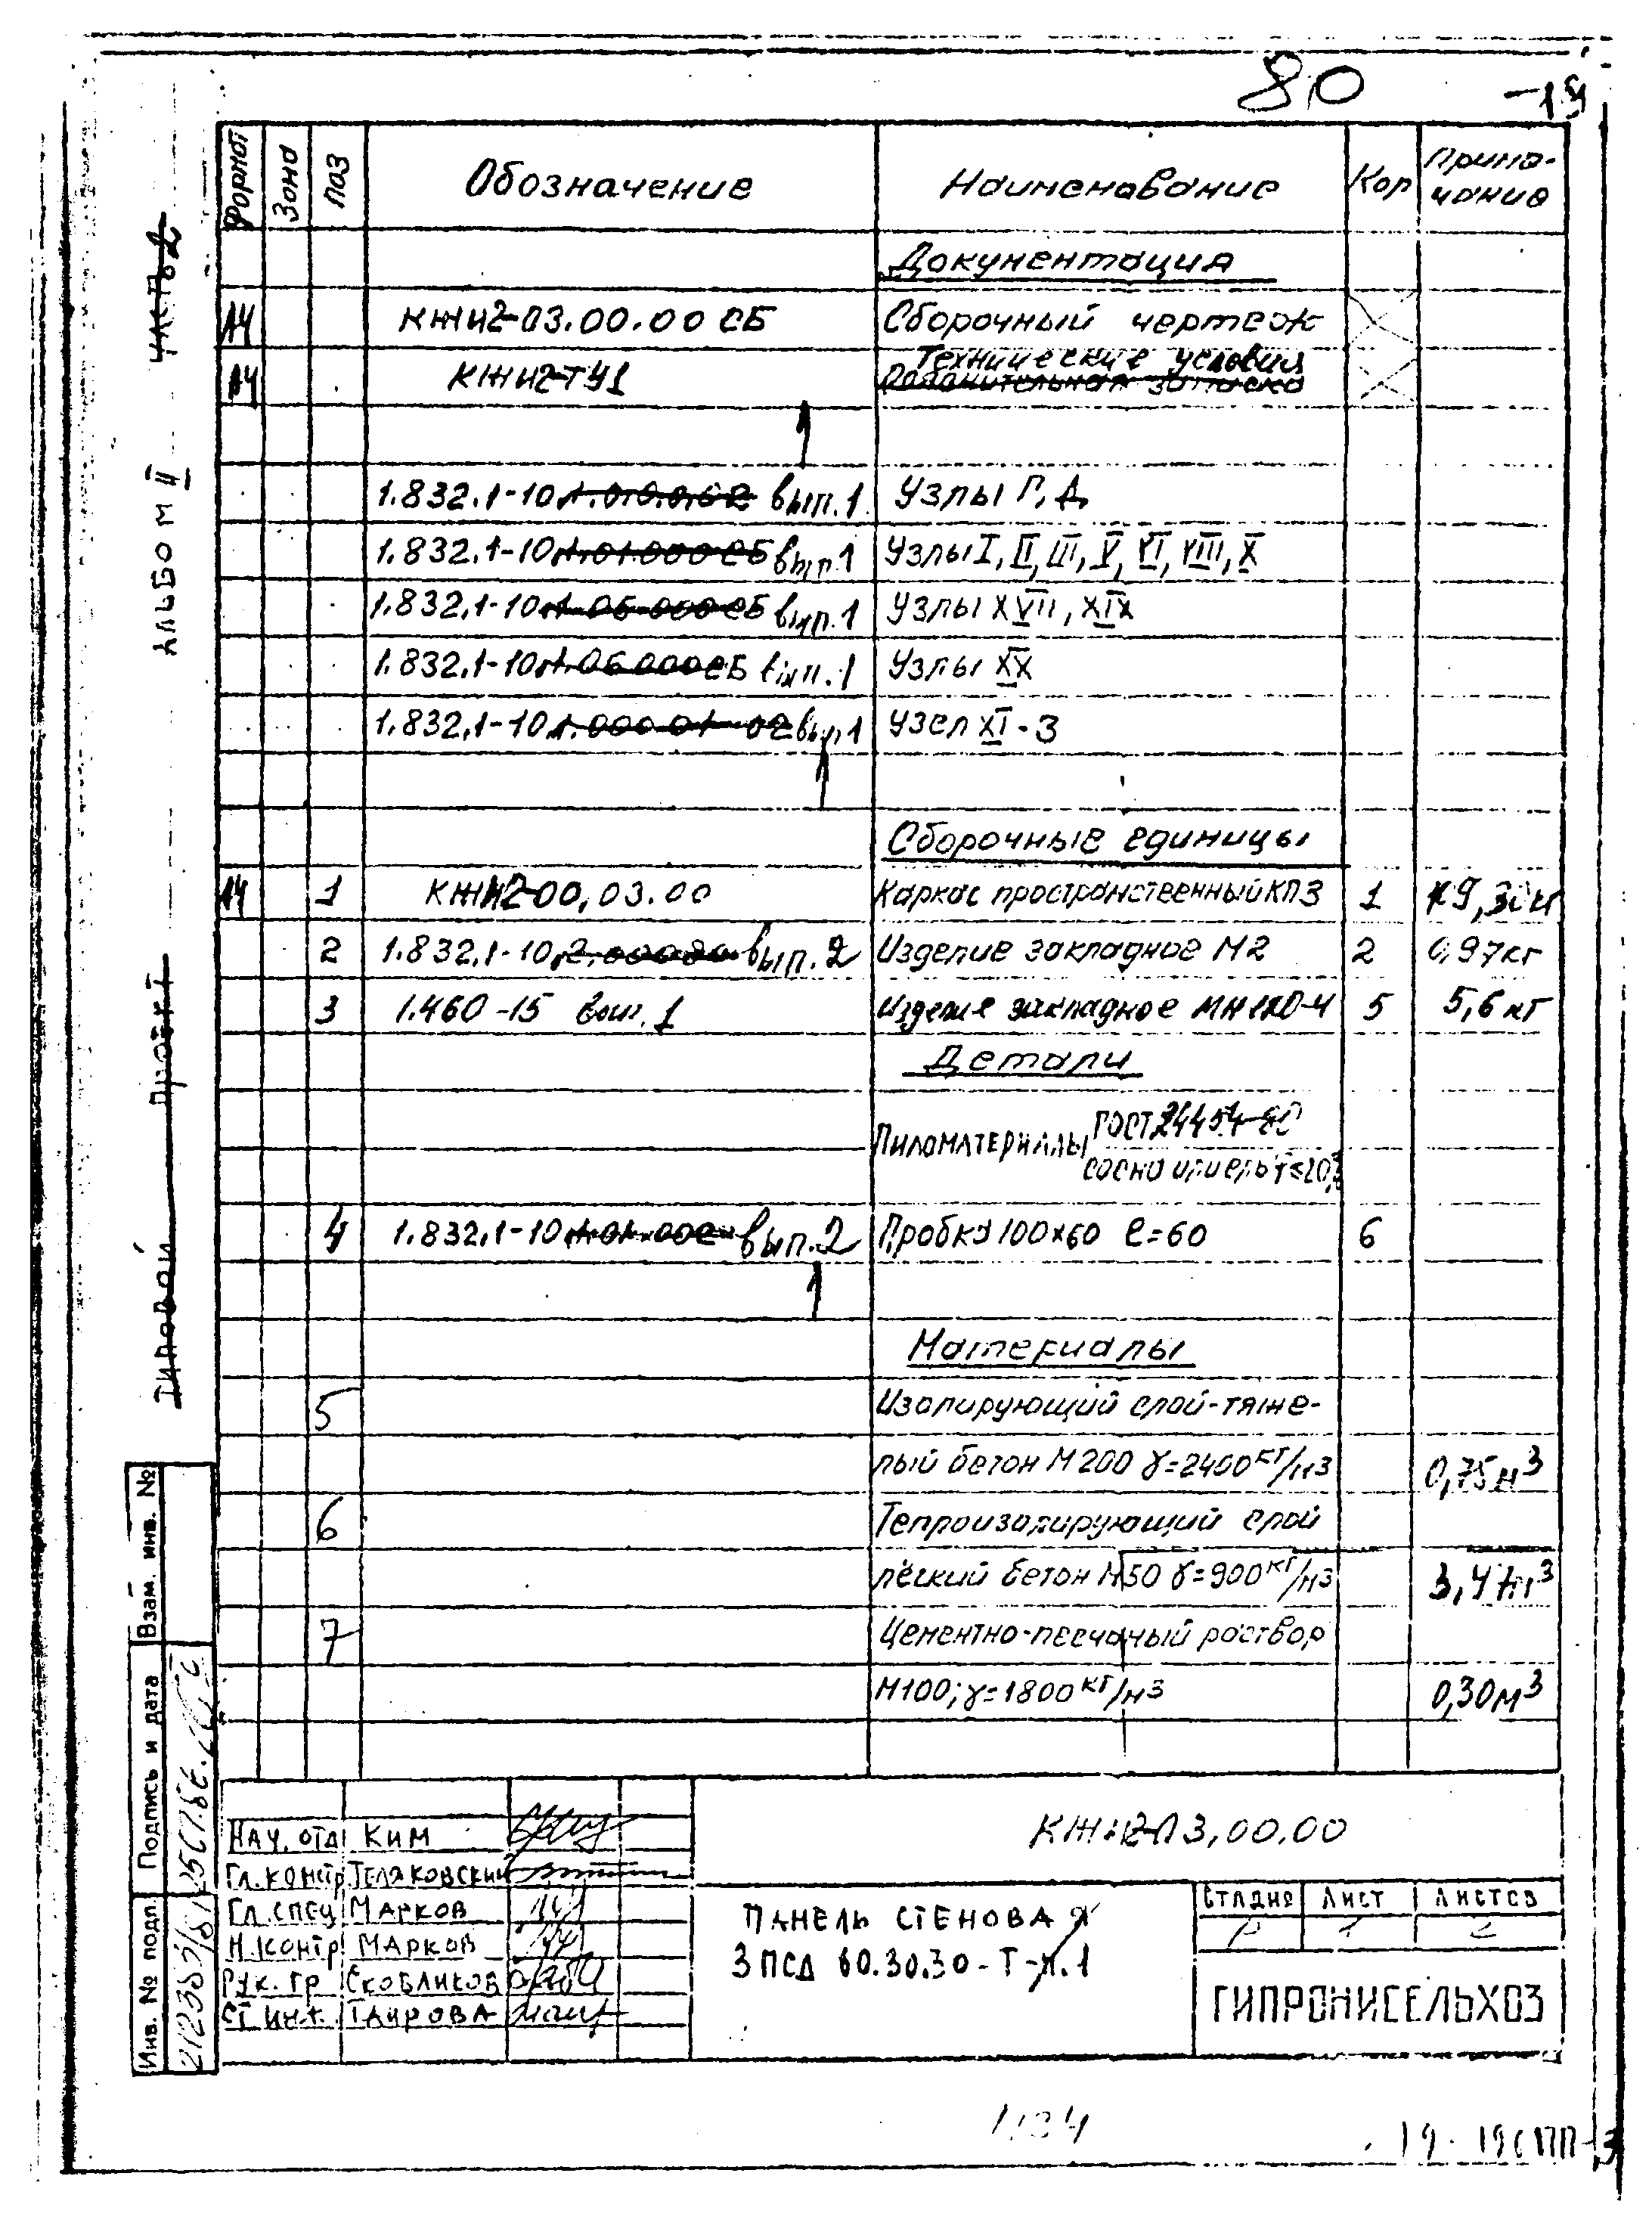 80
Формат Зона Поз Обозначение Наименование Кол Примечание
Документация
А4 КЖИ2-03.00.00 СБ Сборочный чертеж
А4 КЖИ2-ТУ1 Технические условия
1.832.1-10 вып.1 Узлы Г, Д
1.832.1-10 вып.1 Узлы I, II, III, V, VI, VIII, X
1.832.1-10 вып.1 Узлы XVII, XIX
1.832.1-10 вып.1 Узлы XX
1.832.1-10 вып.1 Узел XI-3
Сборочные единицы
А4 1 КЖИ2-00.03.00 Каркас пространственный КП3 1
2 1.832.1-10 вып.2 Изделие закладное М2 2 0,97кг
3 1.460-15 вып.1 Изделие закладное 5 5,6кг
Детали
Пиломатериалы ГОСТ 24454-80
сосна или ель
4 1.832.1-10 вып.2 Пробка 100х60 ℓ=60 6
Материалы
5 Изолирующий слой-тяже-
лый бетон М200 γ=2400кг/м3 0,75м3
6 Теплоизолирующий слой
лёгкий бетон М50 γ=900кг/м3 3,4м3
7 Цементно-песчаный раствор
М100; γ=1800кг/м3 0,30м3
КЖИ2-03.00.00
Нач. отд Ким
Гл. констр Теляковский
Гл. спец Марков
Н. контр Марков
Рук. гр Скобликов
Ст инж. Таирова
Панель стеновая
3ПСД 60.30.30-Т-п.1
Стадия Лист Листов
Р 1
ГИПРОНИСЕЛЬХОЗ
Альбом II часть 2
Типовой проект
Взам. инв. №
Подпись и дата
Инв. № подл.